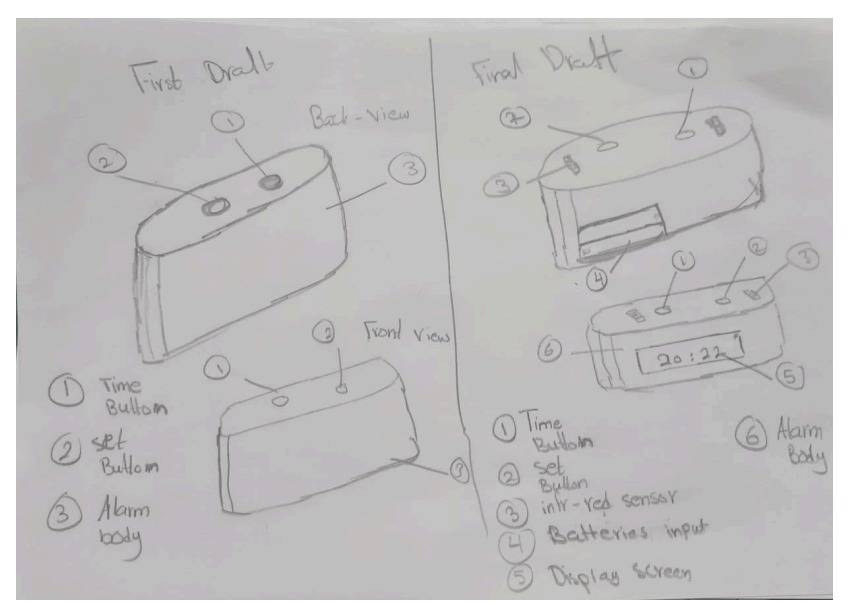 First Draft
Back-view
1
2
3
Front view
1
2
3
1 Time
Buttom
2 set
Buttom
3 Alarm
body
Final Draft
1
2
3
4
1
2
3
6
20:22
5
1 Time
Buttom
2 set
Button
3 infr-red sensor
4 Batteries input
5 Display screen
6 Alarm
Body